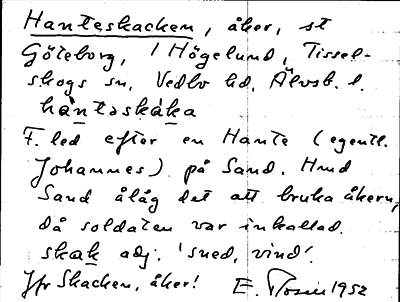 Hanteskacken, åker, st
Göteborg, 1 Högelund, Tissel-
skogs sn, Vedbo hd, Älvsb. l.
hàntəskáka
F. led efter en Hante (egentl.
Johannes) på Sand. Hmd
Sand ålåg det att bruka åkern,
då soldaten var inkallad.
skak adj. 'sned, vind'.
Jfr Skacken, åker! E. Rosen 1952